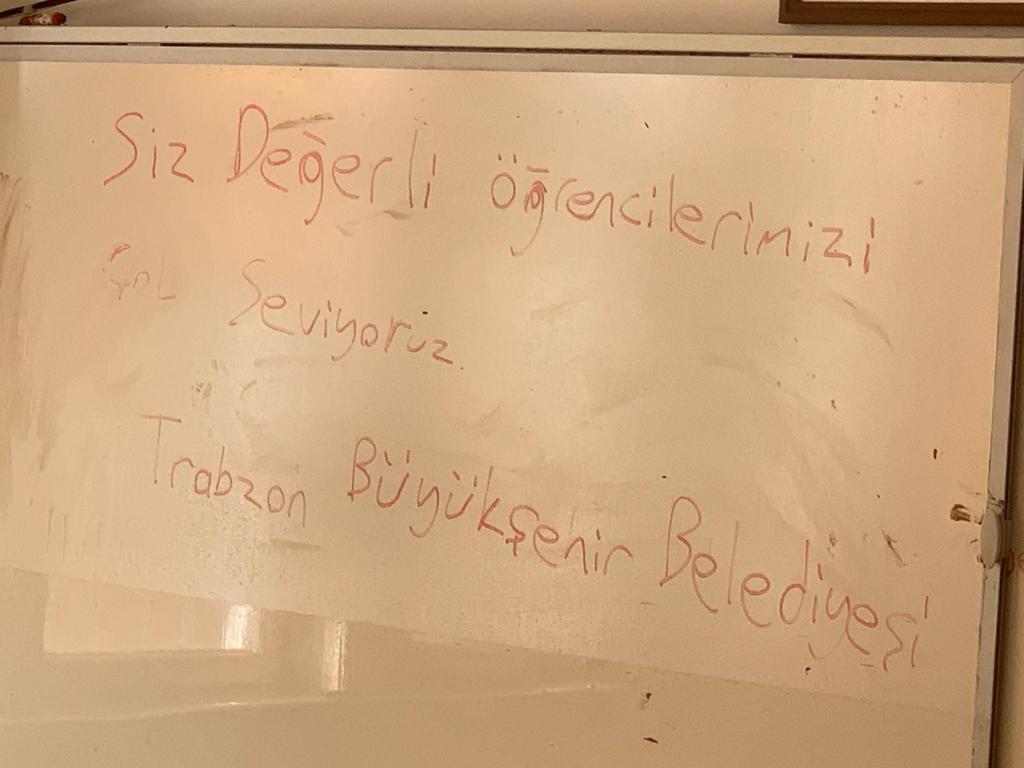 Siz Değerli öğrencilerimizi
Çok Seviyoruz.
Trabzon Büyükşehir Belediyesi